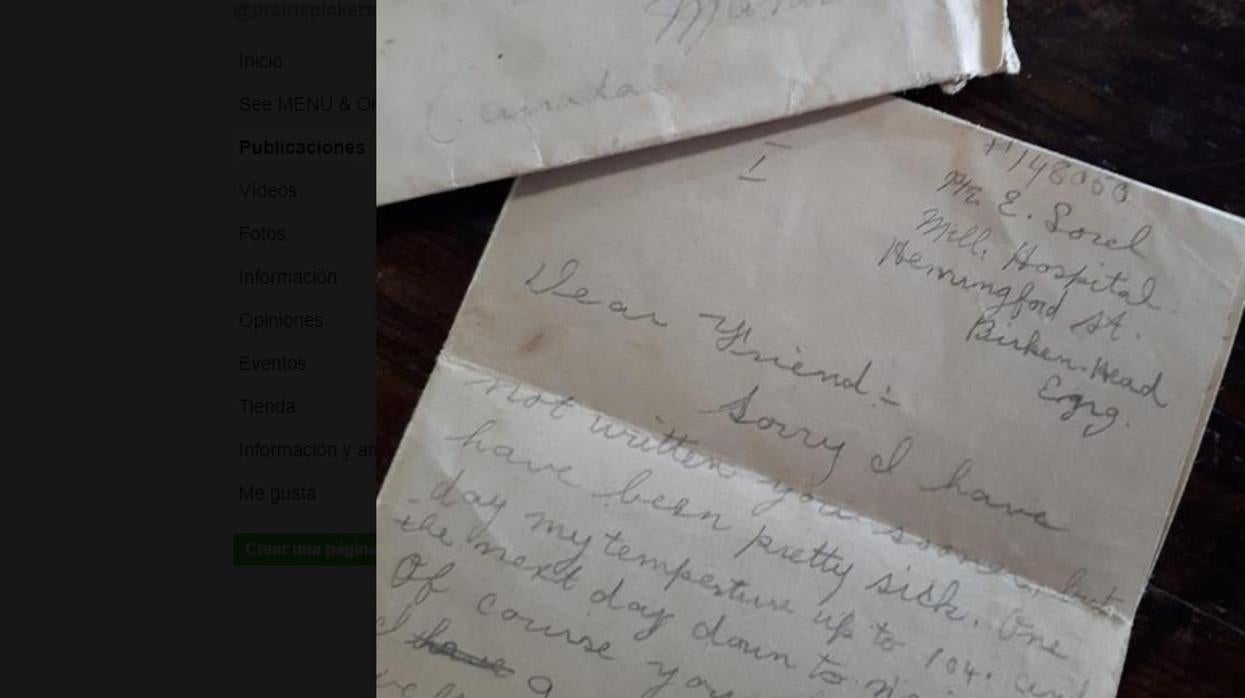 @prairiepickers
Inicio
See MENU & Or
Publicaciones
Vídeos
Fotos
Información
Opiniones
Eventos
Tienda
Información y an
Me gusta
Crear una página
Canada
I
#148060
Pte. E. Sorel
Mill. Hospital
Hemingford st.
Birken-Head
Eng.
Dear Friend:-
Sorry I have
not written you sooner, but
have been pretty sick. One
day my temperture up to 104. and
the next day down to
Of course you
I have a